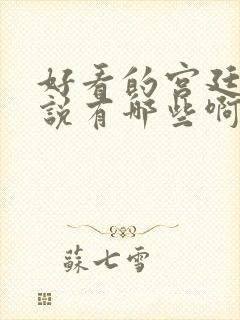 好看的宫廷
说有哪些啊
蘇七雪